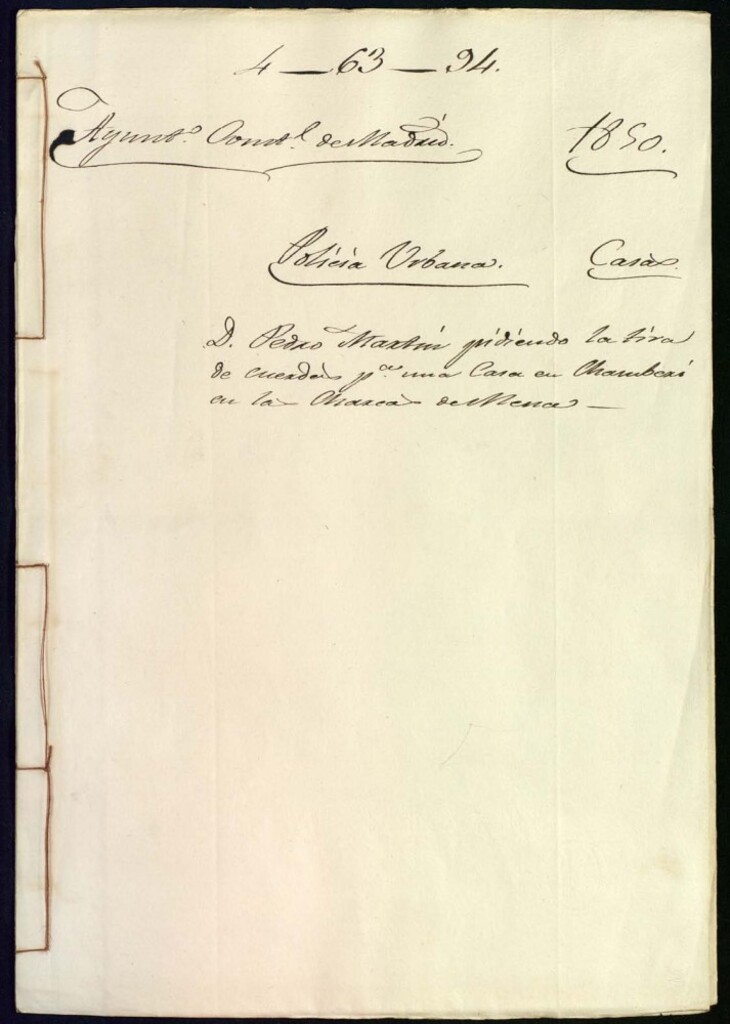 4 — 63 — 94.
Ayunt.º Const.l de Madrid. 1850.
Policia Urbana. Casas.
D. Pedro Martin pidiendo la tira
de cuerdas p.a una Casa en Chamberi
en las Charcas de Mena —